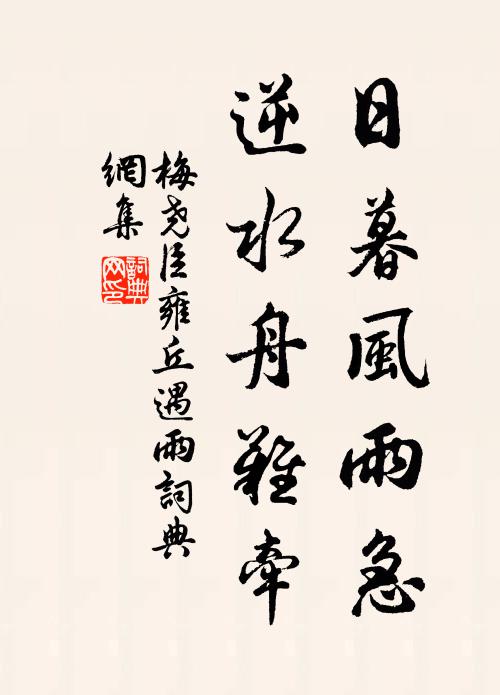 日暮風雨急
逆水舟難牽
梅尧臣雍丘遇雨詞典
網集
詞典
网印